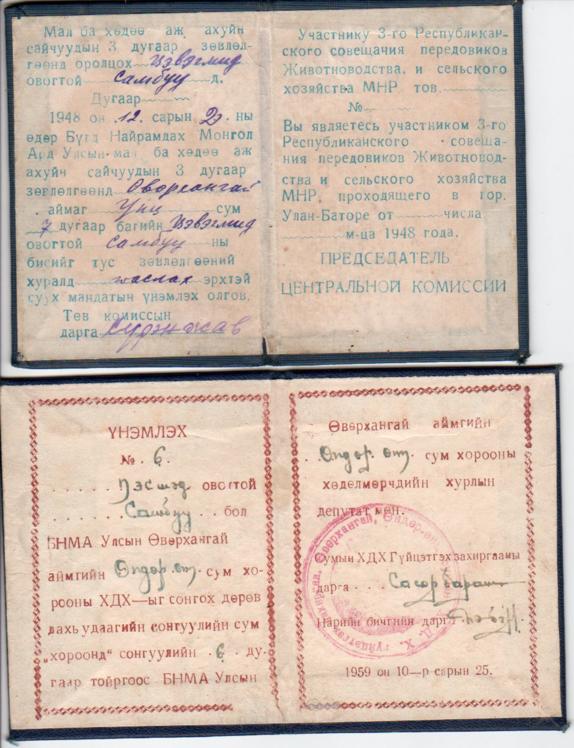 Мал ба хөдөө аж ахуйн
сайчуудын 3 дугаар зөвлөл-
гөөнд оролцох Цэвэгмид
овогтой Самбуу д.
Дугаар
1948 он 12 сарын 2 ны
өдөр Бүгд Найрамдах Монгол
Ард Улсын мал ба хөдөө аж
ахуйн сайчуудын 3 дугаар
зөвлөлгөөнд Өворхангай
аймаг Унц сум
7 дугаар багийн Цэвэгмид
овогтой самбуу ны
бисийг тус зөвлөлгөөний
хуралд таслах эрхтэй
суух мандатын үнэмлэх олгов.
Төв комиссын
дарга Сүрэнжав
Участнику 3-го Республикан-
ского совещания передовиков
Животноводства, и сельского
хозяйства МНР, тов.
№
Вы являетесь участником 3-го
Республиканского совеща-
ния передовиков Животновод-
ства и сельского хозяйства
МНР, проходящего в гор.
Улан-Баторе от числа
м-ца 1948 года.
ПРЕДСЕДАТЕЛЬ
ЦЕНТРАЛЬНОЙ КОМИССИИ
ҮНЭМЛЭХ
№ 6.
овогтой
Самбуу бол
БНМА Улсын Өвөрхангай
аймгийн Өндөр.өл. сум хо-
рооны ХДХ—ыг сонгох дөрөв
дахь удаагийн сонгуулийн сум
„хороонд“ сонгуулийн 6. ду-
гаар тойргоос БНМА Улсын
Өвөрхангай аймгийн
Өндөр.өл. сум хорооны
хөдөлмөрчдийн хурлын
депутат мөн.
Сумын ХДХ Гүйцэтгэх захиргааны
дарга
Нарийн бичгийн дарга
1959 он 10—р сарын 25.